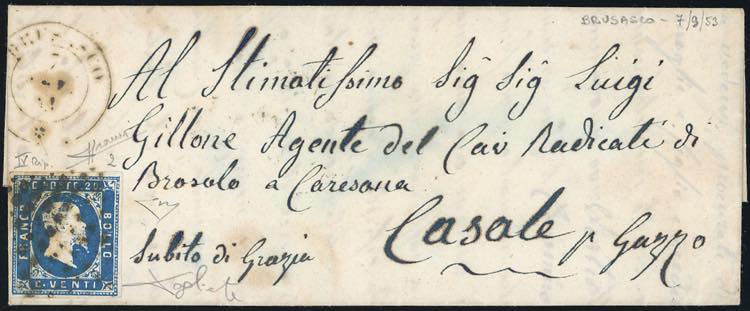 BRUSASCO - 7/9/53
BRUSASCO
Al Stimatissimo Sig Sig Luigi
Gillone Agente del Cav Radicati di
Brosolo a Caresana
Casale p Gazzo
Subito di Grazia
IV Rip.
2
C. POSTE 20
FRANCO
BOLLO
C. VENTI